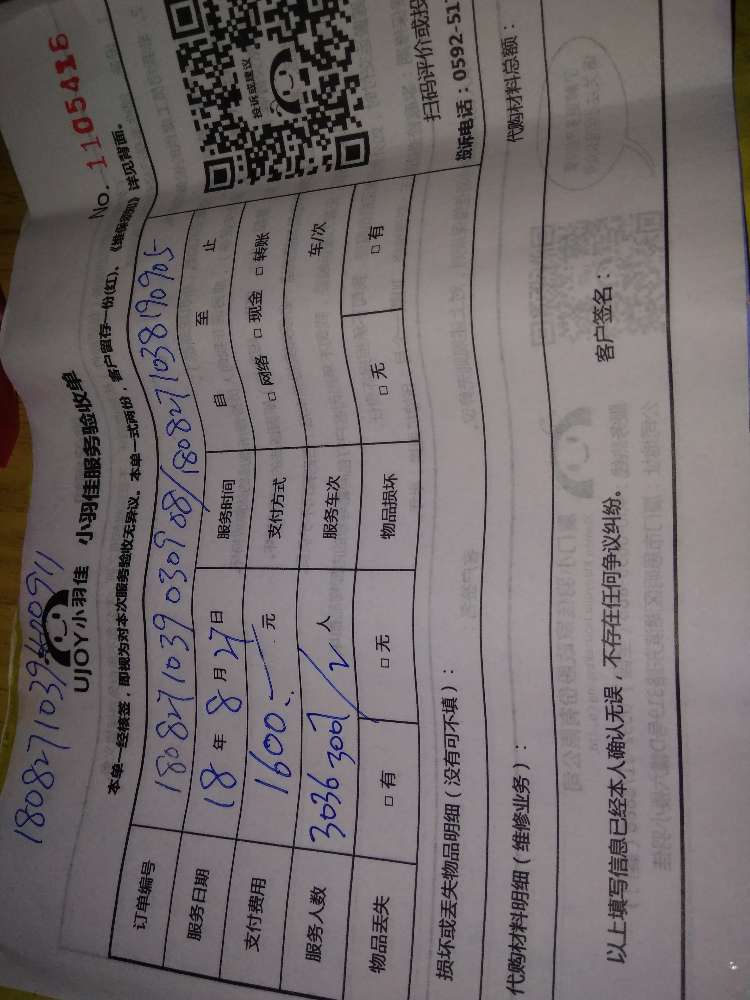 180827103940091
UJOY小羽佳 小羽佳服务验收单
No. 1105416
本单一经核签，即视为对本次服务验收无异议。本单一式两份，客户留存一份(红)、《维保须知》详见背面。
订单编号 18082710390309 08/180827103819 0905
服务日期 18 年 8 月 27 日 服务时间 自 至 止
支付费用 1600 元 支付方式 □ 网络 □ 现金 □ 转账
服务人数 3036 3007 / 2 人 服务车次 车/次
物品丢失 □ 有 □ 无 物品损坏 □ 无 □ 有
投诉或建议
扫码评价或投
投诉电话：0592-517
损坏或丢失物品明细（没有可不填）：
代购材料明细（维修业务）： 代购材料总额：
以上填写信息已经本人确认无误，不存在任何争议纠纷。 客户签名：